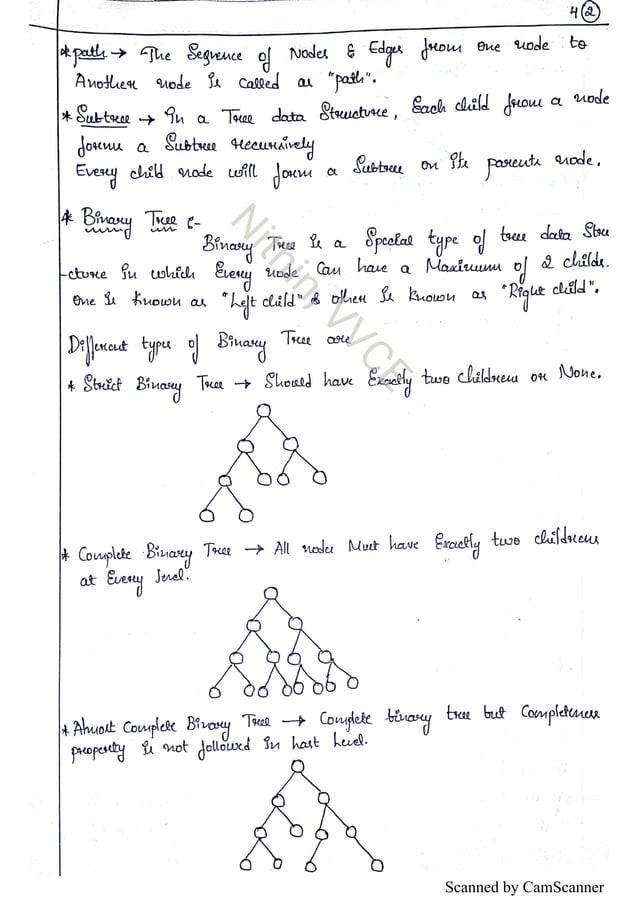 4 2
* path → The Sequence of Nodes & Edges from one node to
Another node is called as "path".
* Subtree → In a Tree data Structure, Each child from a node
forms a Subtree recursively
Every child node will form a Subtree on its parents node.
* Binary Tree :-
Binary Tree is a Special type of tree data Stru
-cture in which Every node Can have a Maximum of 2 childs.
One is known as "Left child" & other is known as "Right child".
Different types of Binary Tree are
* Strict Binary Tree → Should have Exactly two Children or None.
* Complete Binary Tree → All nodes Must have Exactly two childrens
at Every level.
* Almost Complete Binary Tree → Complete binary tree but Completeness
property is not followed in last level.
Nithin, VVCE
Scanned by CamScanner